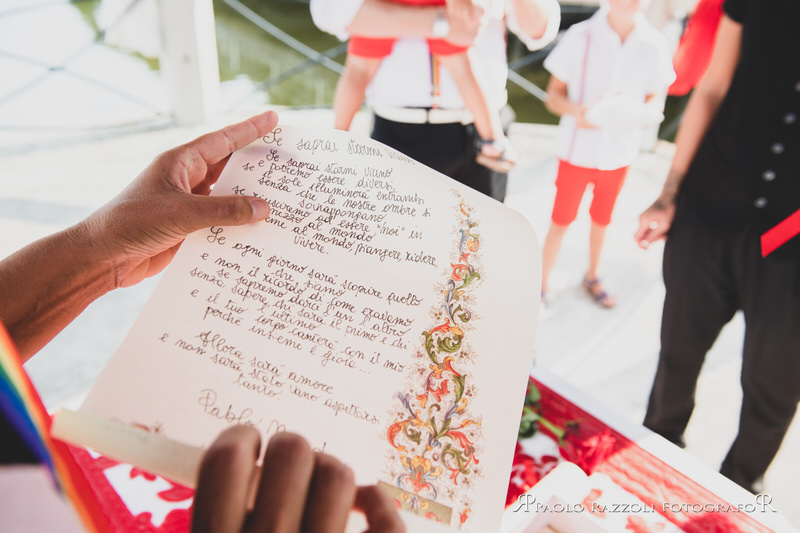 Se saprai starmi
Se saprai starmi vicino
e potremo essere diversi,
se il sole illuminerà entrambi
senza che le nostre ombre si
sovrappongano,
se riusciremo ad essere "noi" in
mezzo al mondo
e insieme al mondo, piangere, ridere,
vivere.
Se ogni giorno sarà scoprire quello
che siamo
e non il ricordo di come eravamo,
se sapremo darci l'un l'altro
senza sapere chi sarà il primo e chi
l'ultimo
e il tuo corpo canterà con il mio
perchè insieme è gioia...
Allora sarà amore
e non sarà stato vano aspettarsi
tanto
Pablo
PAOLO RAZZOLI FOTOGRAFO